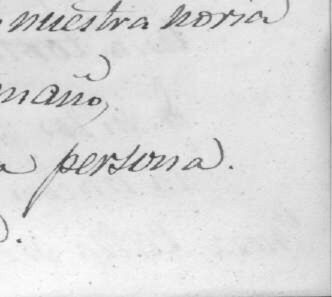 nuestra noria
maño,
a persona.
.